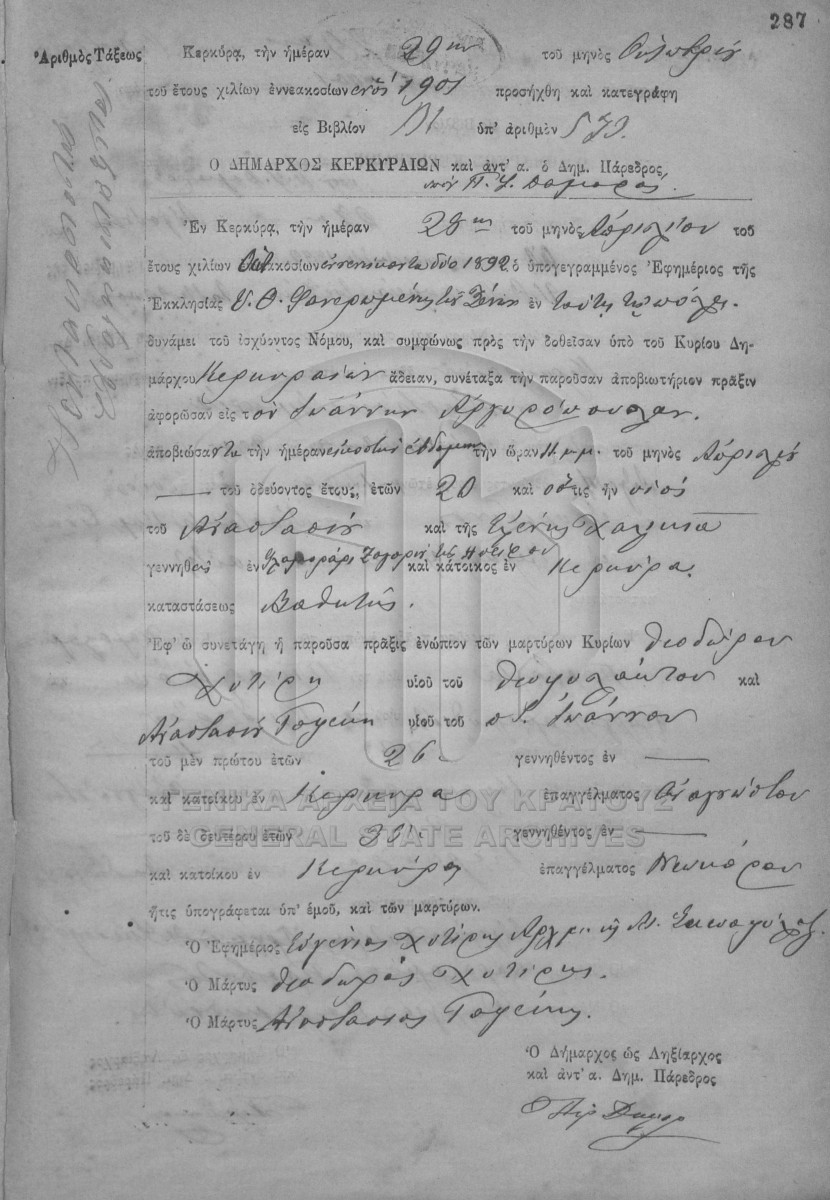 287
Ἀριθμὸς Τάξεως
Κερκύρᾳ, τὴν ἡμέραν 29ην τοῦ μηνὸς Ὀκτωβρίου
τοῦ ἔτους χιλίων ἐννεακοσίων ἑνός 1901 προσήχθη καὶ κατεγράφη
εἰς Βιβλίον ὑπ' ἀριθμὸν
Ο ΔΗΜΑΡΧΟΣ ΚΕΡΚΥΡΑΙΩΝ καὶ ἀντ' α. ὁ Δημ. Πάρεδρος
Ἐν Κερκύρᾳ, τὴν ἡμέραν 28ην τοῦ μηνὸς Ἀπριλίου τοῦ
ἔτους χιλίων Ὀκτακοσίων ἐννενήκοντα δύο 1892 ὁ ὑπογεγραμμένος Ἐφημέριος τῆς
Ἐκκλησίας Υ. Θ. Φανερωμένης τῶν Ξένων ἐν ταύτῃ τῇ πόλει
δυνάμει τοῦ ἰσχύοντος Νόμου, καὶ συμφώνως πρὸς τὴν δοθεῖσαν ὑπὸ τοῦ Κυρίου Δη-
μάρχου Κερκυραίων ἄδειαν, συνέταξα τὴν παροῦσαν ἀποβιωτήριον πρᾶξιν
ἀφορῶσαν εἰς τὸν Ἰωάννην Ἀργυρόπουλον.
ἀποβιώσαντα τὴν ἡμέραν εἰκοστὴν ἑβδόμην τὴν ὥραν μ.μ. τοῦ μηνὸς Ἀπριλίου
τοῦ ὁδεύοντος ἔτους, ἐτῶν 20 καὶ ὅστις ἦν υἱός
τοῦ Ἀναστασίου καὶ τῆς Ἑλένης
γεννηθεὶς ἐν Ζαγορίου τῆς Ἠπείρου καὶ κάτοικος ἐν Κερκύρᾳ.
καταστάσεως Μαθητής.
Ἐφ' ᾧ συνετάγη ἡ παροῦσα πρᾶξις ἐνώπιον τῶν μαρτύρων Κυρίων Θεοδώρου
Χυτίρη υἱοῦ τοῦ Θεοφυλάκτου καὶ
Ἀναστασίου υἱοῦ τοῦ π. Ἰωάννου
τοῦ μὲν πρώτου ἐτῶν 26 γεννηθέντος ἐν
καὶ κατοίκου ἐν Κερκύρᾳ ἐπαγγέλματος Ἀναγνώστου
τοῦ δὲ δευτέρου ἐτῶν γεννηθέντος ἐν
καὶ κατοίκου ἐν Κερκύρᾳ ἐπαγγέλματος Νεωκόρου
ἥτις ὑπογράφεται ὑπ' ἐμοῦ, καὶ τῶν μαρτύρων.
Ὁ Ἐφημέριος Εὐγένιος Χυτίρης
Ὁ Μάρτυς Θεόδωρος Χυτίρης.
Ὁ Μάρτυς Ἀναστάσιος
Ὁ Δήμαρχος ὡς Ληξίαρχος
καὶ ἀντ' α. Δημ. Πάρεδρος
ΓΕΝΙΚΑ ΑΡΧΕΙΑ ΤΟΥ ΚΡΑΤΟΥΣ
GENERAL STATE ARCHIVES